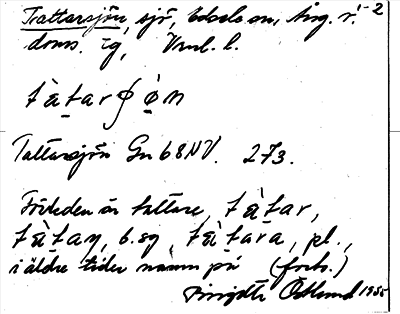 Tattarsjön, sjö, sn, Ång. r. -2
doms. ig, Vrml. l.
tàtarʃòn
Tattarsjön Gn 68 NV. 273.
Förleden är tattare, tàtar,
tàtaŋ, b. sg., tàtara, pl.,
i äldre tider namn på (forts.)
Östlund 1935